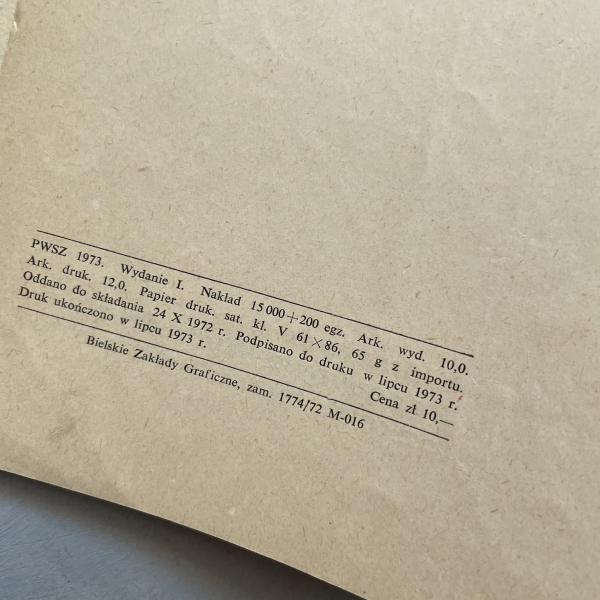 PWSZ 1973. Wydanie I. Nakład 15 000+200 egz. Ark. wyd. 10,0.
Ark. druk. 12,0. Papier druk. sat. kl. V 61×86, 65 g z importu.
Oddano do składania 24 X 1972 r. Podpisano do druku w lipcu 1973 r.
Druk ukończono w lipcu 1973 r. Cena zł 10,—
Bielskie Zakłady Graficzne, zam. 1774/72 M-016